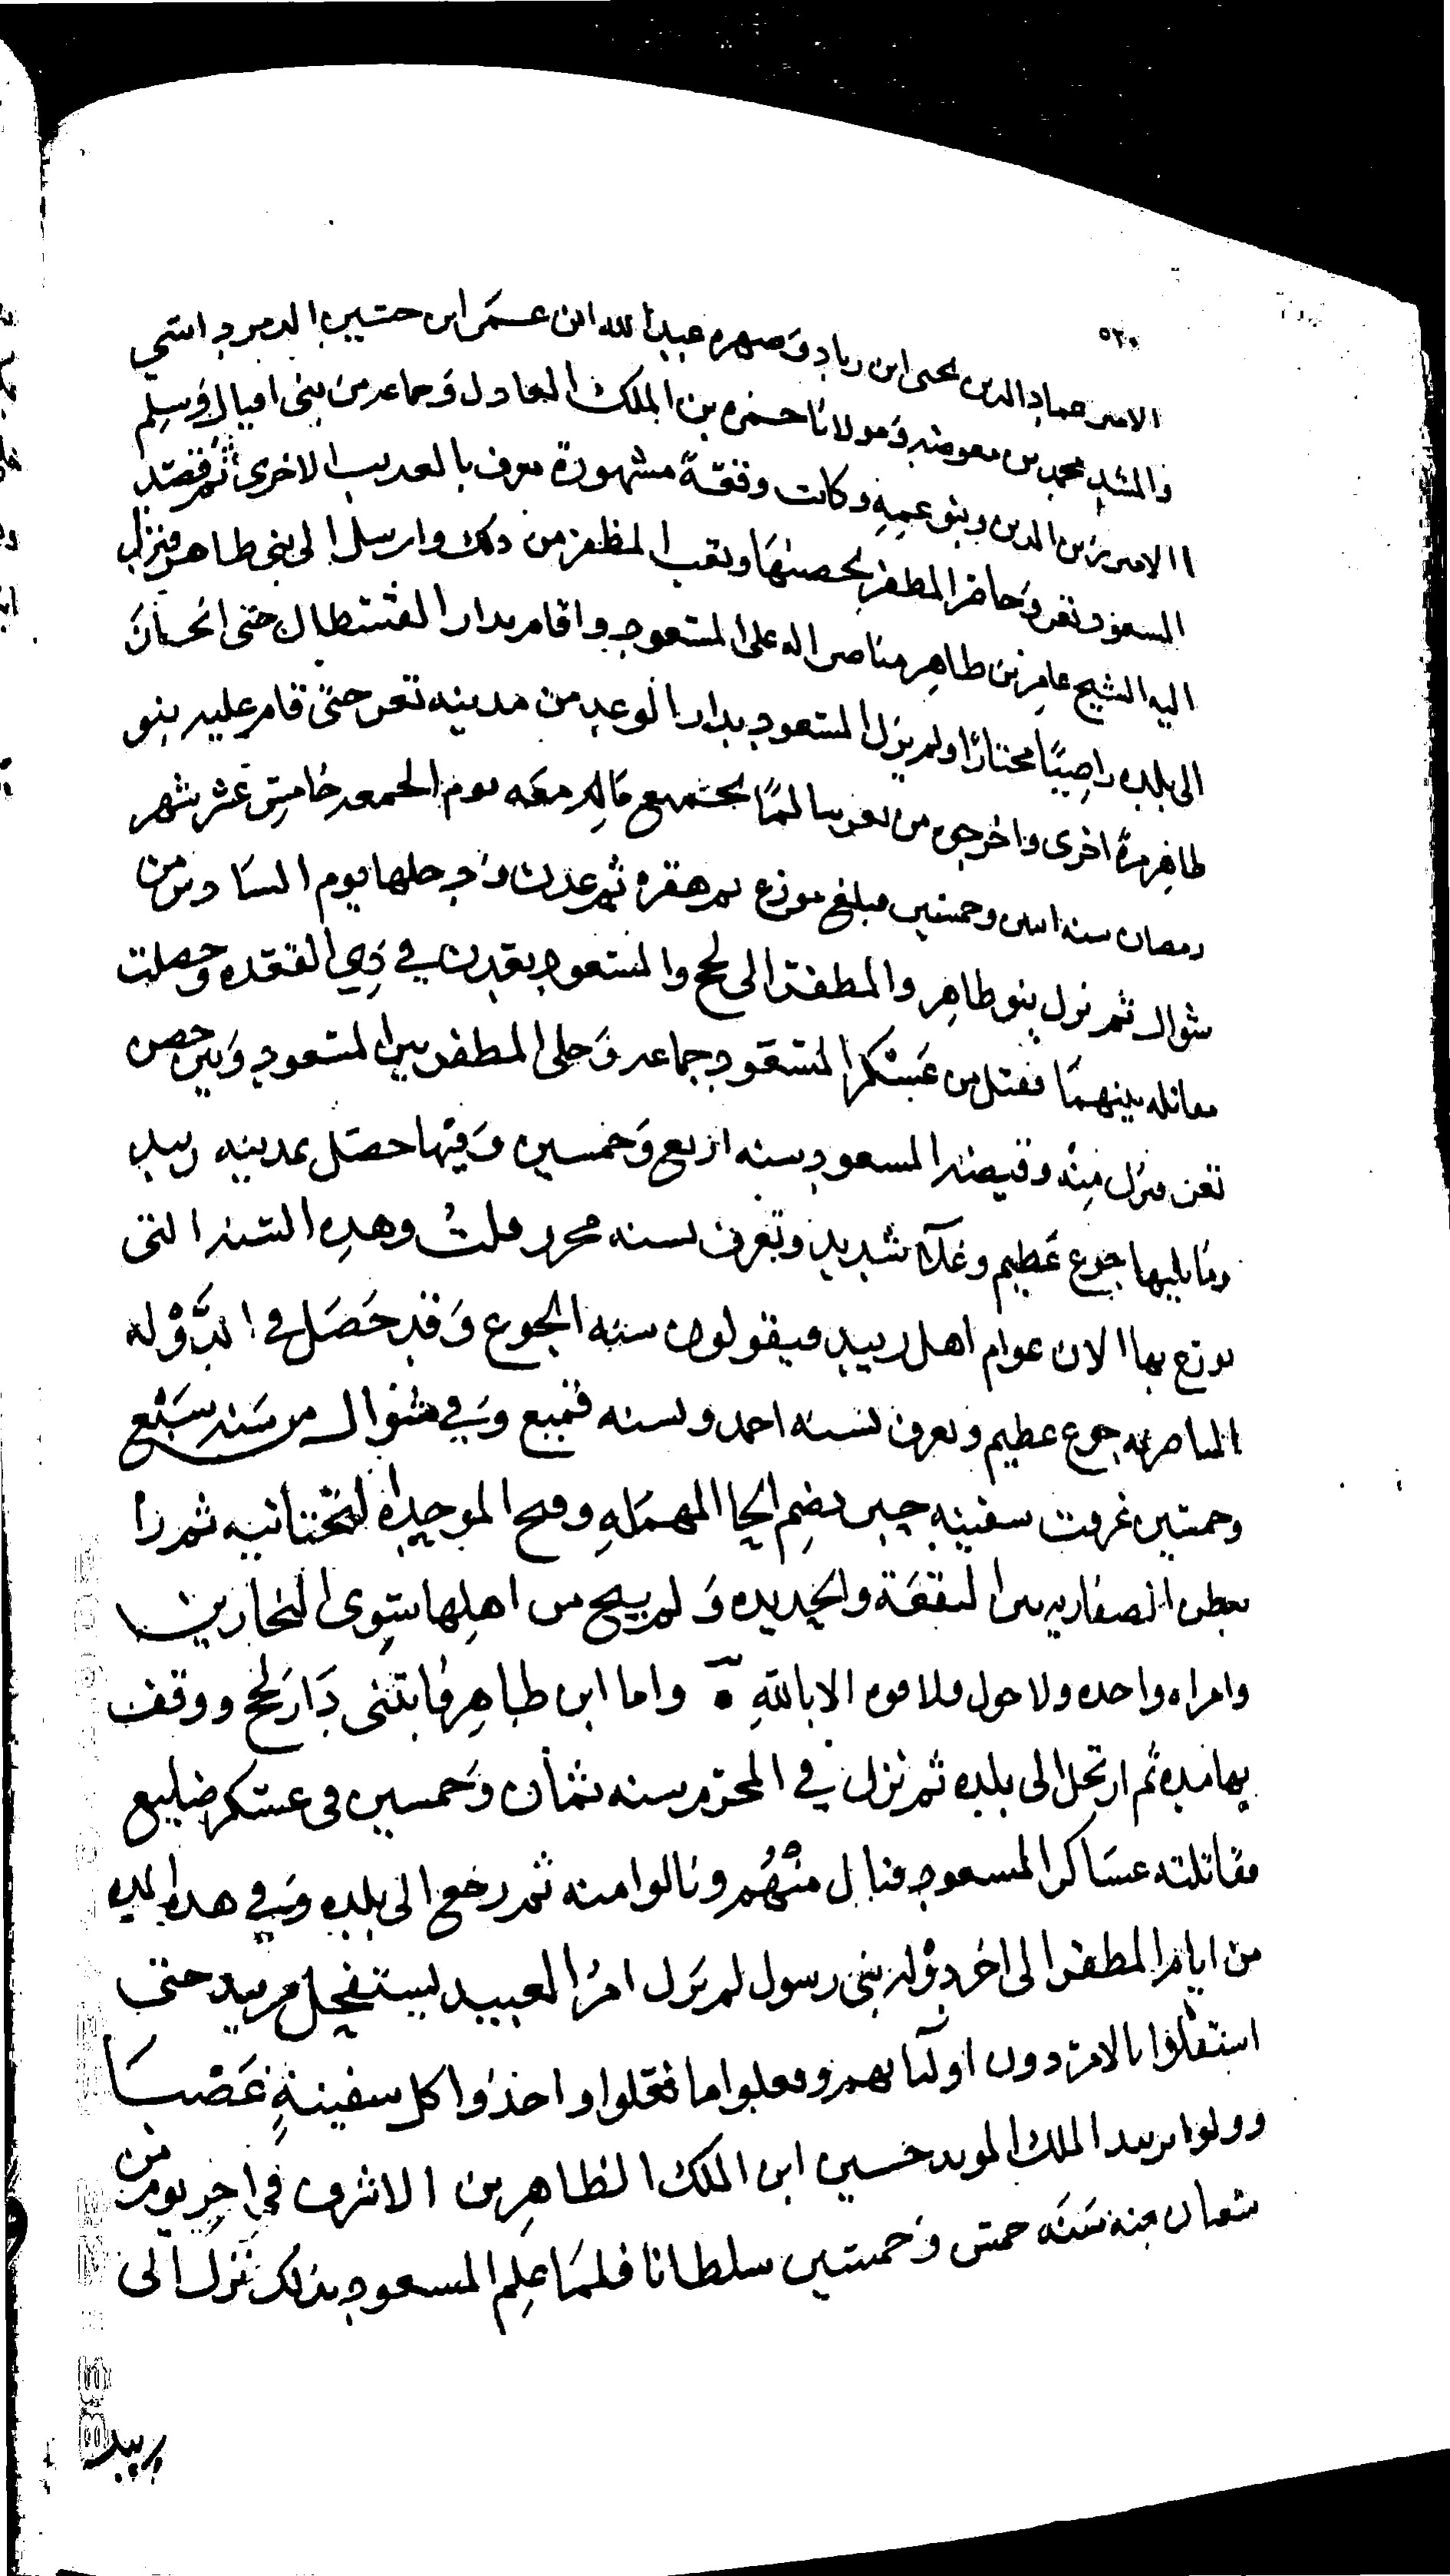 ٥٢٠
الامير عماد الدين يحيى ابن زياد وصهره عبد الله ابن عمر ابن حسين الدمرداشي
والمشد محمد بن معوضه ومولانا حمزه بن الملك العادل وجماعه من بني اقبال وسلم
الامير زين الدين وبنو عمه وكانت وقفة مشهورة تعرف بالعديب الاخرى ثم قصد
المسعود تعز وحاصر المظفر بحصنها وتعب المظفر من ذلك وارسل الى بني طاهر فنزل
اليه الشيخ عامر بن طاهر مناصرا له على المسعود واقام بدار القسطال حتى انحاز
الى بلده راضيًا مختارًا ولم يزل المسعود بدار الوعد من مدينه تعز حتى قام عليه بنو
طاهر مرة اخرى واخرجوه من تعز سالمًا بجميع ماله معه يوم الجمعه خامس عشر شهر
رمضان سنه اثنين وخمسين فبلغ موزع ثم هقره ثم عدن ودخلها يوم السادس من
شوال ثم نزل بنو طاهر والمظفر الى لحج والمسعود بعدن في ذي القعده وحصلت
مقاتله بينهما فقتل من عسكر المسعود جماعه وخلى المظفر بين المسعود وبين حصن
تعز فنزل منه وقبضه المسعود سنه اربع وخمسين وفيها حصل بمدينه زبيد
وما يليها جوع عظيم وغلاء شديد وتعرف بسنه محرر قلت وهذه السنه التي
يورخ بها الان عوام اهل زبيد فيقولون سنه الجوع وقد حصل في الدوله
الناصريه جوع عظيم وتعرف بسنه احمد وبسنه قميع وفي شوال من سنه سبع
وخمسين غرقت سفينه حيس بضم الحا المهمله وفتح الموحده التحتانيه ثم را
بقطن الصفاريه بين البقعة والحديده ولم ينج من اهلها سوى البحارين
وامراه واحده ولا حول ولا قوه الا بالله واما ابن طاهر فابتنى دار لحج ووقف
بها مده ثم ارتحل الى بلده ثم نزل في المحرم سنه ثمان وخمسين في عسكر ضليع
فقاتلته عساكر المسعود فنال منهم ونالوا منه ثم رجع الى بلده وفي هذه المده
من ايام المظفر الى اخر دوله بني رسول لم يزل امر العبيد يستفحل بزبيد حتى
استقلوا بالامر دون اوليائهم وفعلوا ما فعلوا واخذوا كل سفينة غصبا
وولوا بزبيد الملك المويد حسين ابن الملك الظاهر بن الاشرف في اخر يوم من
شعبان منه سنه خمس وخمسين سلطانا فلما علم المسعود بذلك نزل الى
زبيد